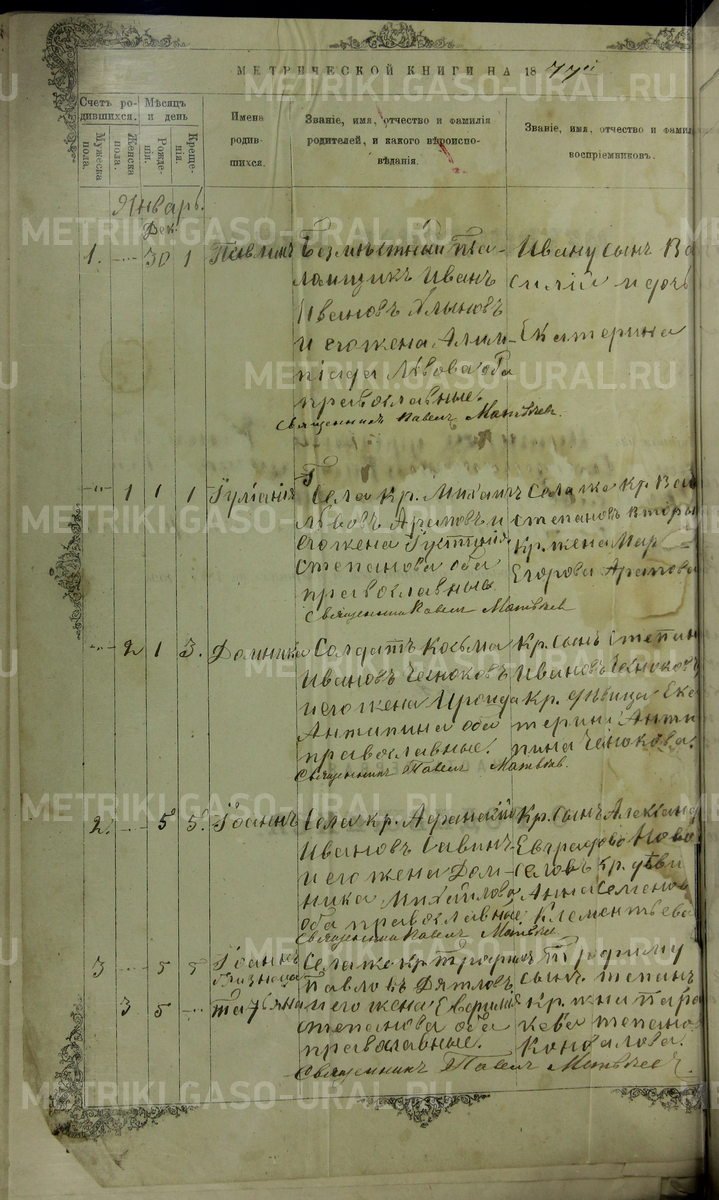 МЕТРИЧЕСКОЙ КНИГИ НА 1877й
Счетъ ро-
дившихся.
Мужеска
пола.
Женска
пола.
Мѣсяцъ
и день
Рожде-
нія.
Креще-
нія.
Имена
родив-
шихся.
Званіе, имя, отчество и фамилія
родителей, и какого вѣроиспо-
вѣданія.
Званіе, имя, отчество и фамил
воспріемниковъ.
Январь.
Дек.
1. 30 1
Иванъ
Ивановъ
и его жена
Львова оба
православные.
Священникъ Павелъ Матвѣевъ.
Ивану сынъ Ва
силій и дочь
Екатерина
1 1 1
Села кр. Михаилъ
Львовъ Араповъ и
его жена
Степанова оба
православные
Священникъ Павелъ Матвѣевъ
Села же кр. Ва
Степановъ
Кр. жена Мар
Егорова Арапова
2 1 3. Домникія
Солдатъ Косьма
Ивановъ Чесноковъ
и его жена Ироида
Антипина оба
православные.
Священникъ Павелъ Матвѣевъ.
Кр. сынъ Степанъ
Ивановъ Чесноковъ
Кр. дѣвица Ека
терина Анти
пина Чеснокова.
2. 5 5. Іоаннъ
Села кр. Афанасій
Ивановъ Савинъ
и его жена Дом-
ника Михайлова
оба православные
Священникъ Павелъ Матвѣевъ
Кр. сынъ Александ
Евграфовъ Ново
селовъ Кр. дѣви
Анна Семенов
Клементьева
3 5 5 Іоаннъ
близнецы
3 5 Татьяна
Села же кр.
Павловъ Дятловъ
и его жена Евфимія
Степанова оба
православные.
Священникъ Павелъ Матвѣевъ.
Трофиму
сынъ Степанъ
Кр. жена Пара
скева Степано
Коновалова.
METRIKI.GASO-URAL.RU